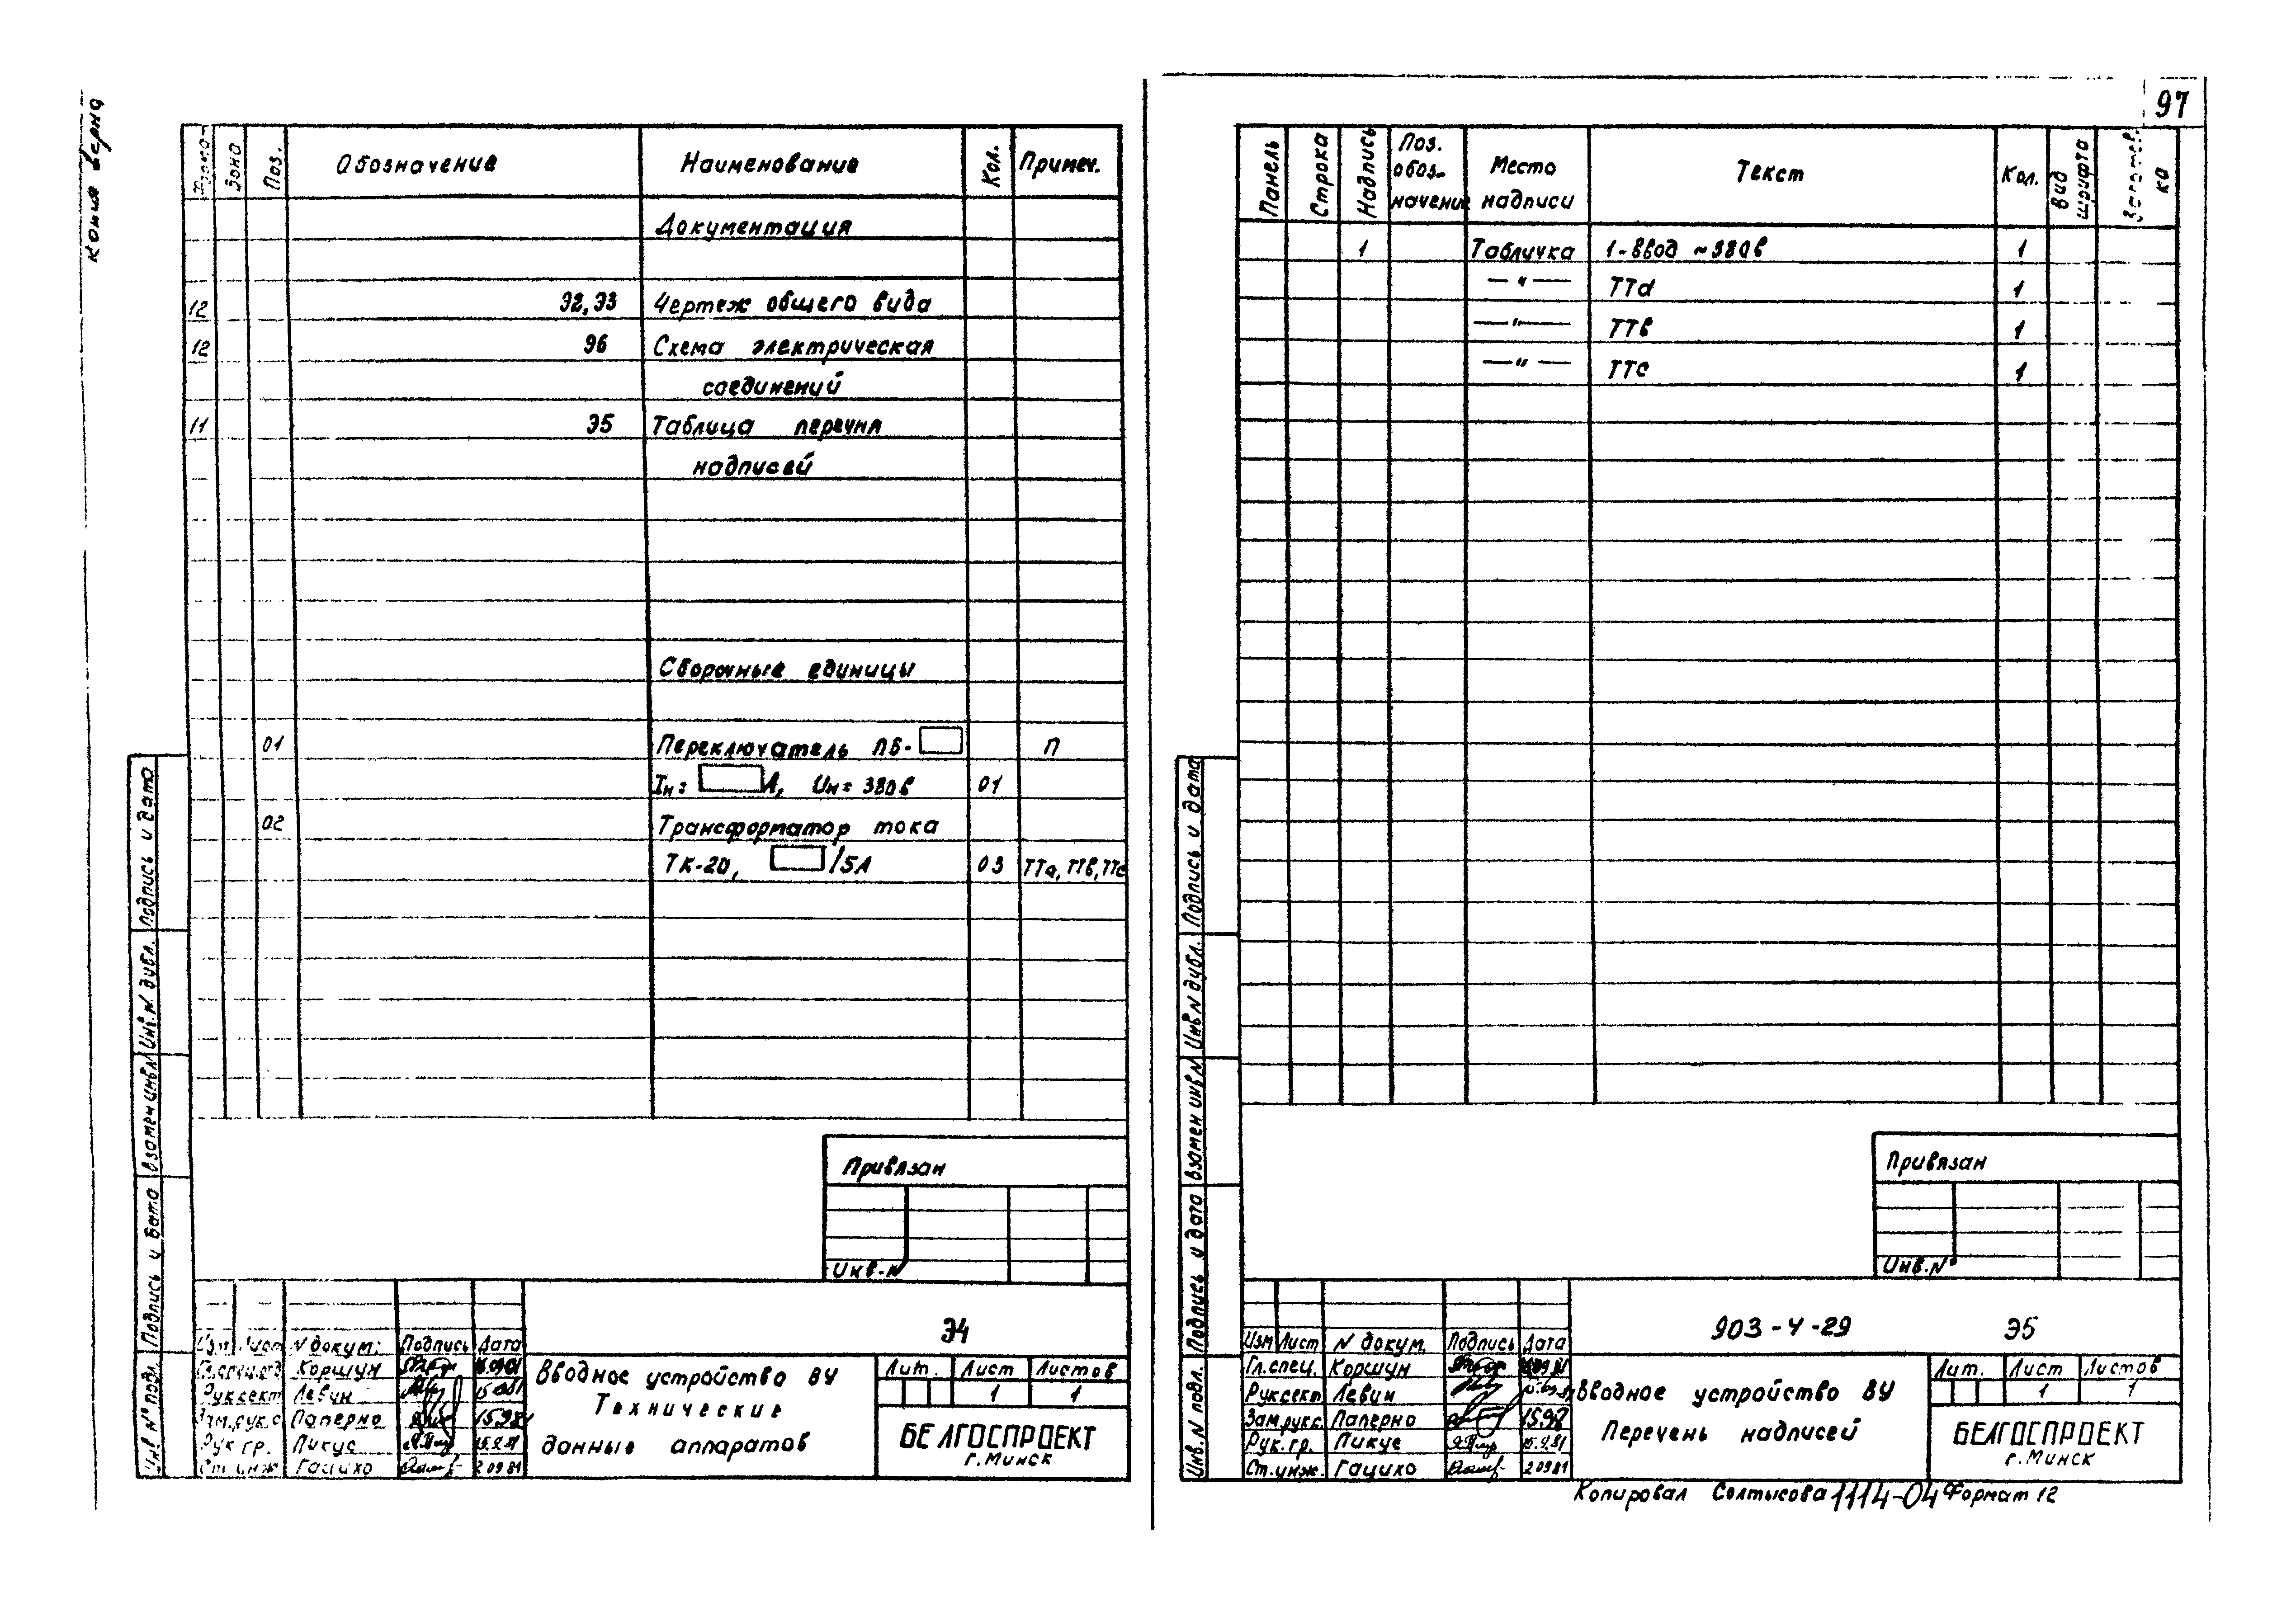 копия верна
97
Формат Зона Поз. Обозначение Наименование Кол. Примеч.
Документация
12 Э2,Э3 Чертеж общего вида
12 Э6 Схема электрическая
соединений
11 Э5 Таблица перечня
надписей
Сборочные единицы
01 Переключатель ПБ- П
Iн= А, Uн= 380в 01
02 Трансформатор тока
ТК-20, /5А 03 ТТа, ТТв, ТТс
Привязан
Инв.N
Э4
Изм Лист N докум. Подпись Дата
Гл.спец.отд Коршун
Рук.сект Левин
Зам.рук.с Паперно
Рук гр. Пикус 15.9.81
Ст.инж Гацихо 2.09.81
Вводное устройство ВУ
Технические
данные аппаратов
Лит. Лист Листов
1 1
БЕЛГОСПРОЕКТ
г.Минск
Инв N° подл. Подпись и дата Взамен инв.N Инв.N дубл. Подпись и дата
Панель Строка Надпись Поз. обоз- начение Место надписи Текст Кол. Вид шрифта
1 Табличка 1-Ввод ~380в 1
—"— ТТа 1
—"— ТТв 1
—"— ТТс 1
Привязан
Инв.N°
903-4-29 Э5
Изм Лист N докум. Подпись Дата
Гл.спец. Коршун
Рук.сект Левин
Зам.рук.с. Паперно
Рук.гр. Пикус 15.9.81
Ст.инж. Гацихо 2.09.81
Вводное устройство ВУ
Перечень надписей
Лит. Лист Листов
1 1
БЕЛГОСПРОЕКТ
г.Минск
Инв.N подл. Подпись и дата Взамен инв.N Инв.N дубл. Подпись и дата
Копировал Солтысова 1114-04 Формат 12